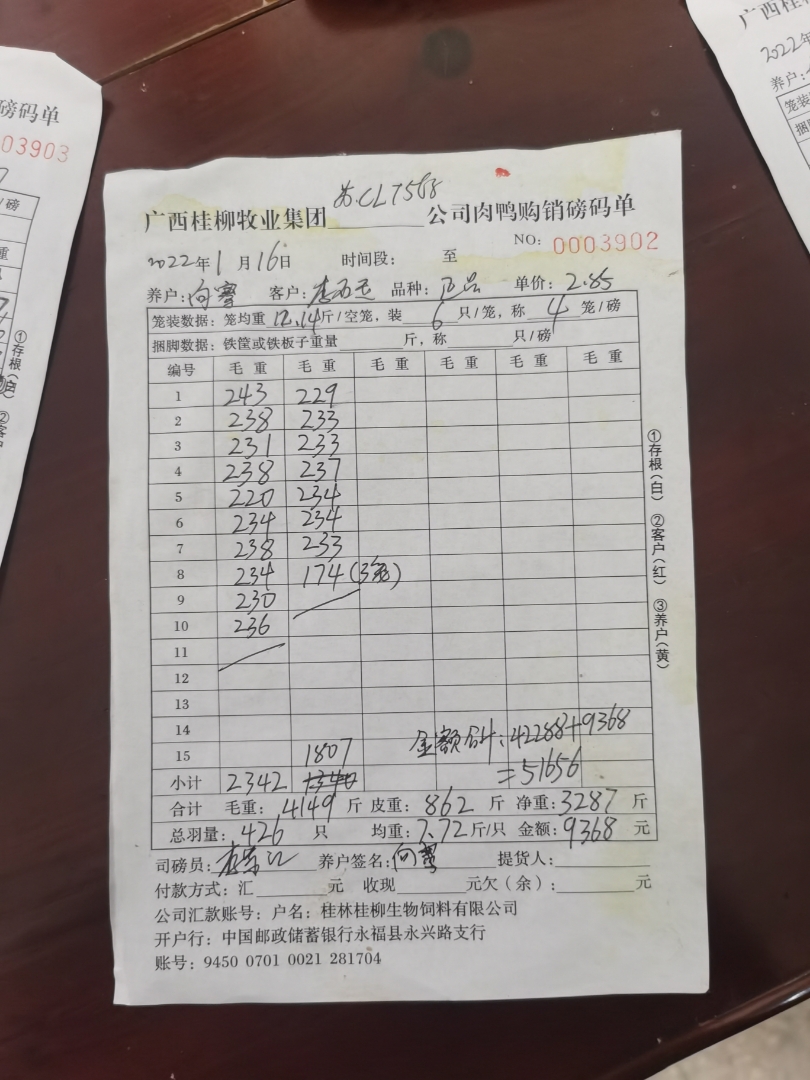 苏CL7588
广西桂柳牧业集团________公司肉鸭购销磅码单
NO: 0003902
2022年1月16日 时间段: 至
养户: 向 客户: 李 品种: 正品 单价: 2.85
笼装数据: 笼均重12.14斤/空笼, 装6只/笼, 称4笼/磅
捆脚数据: 铁筐或铁板子重量________斤, 称________只/磅
编号 毛重 毛重 毛重 毛重 毛重 毛重
1 243 229
2 238 233
3 231 233
4 238 237
5 220 234
6 234 234
7 238 233
8 234 174(3笼)
9 230
10 236
11
12
13
14 金额合计: 42288+9368
15 1807 =51656
小计 2342
合计 毛重: 4149斤 皮重: 862斤 净重: 3287斤
总羽量: 426只 均重: 7.72斤/只 金额: 9368元
司磅员: 养户签名: 向 提货人:
付款方式: 汇________元 收现________元欠(余): ________元
公司汇款账号: 户名: 桂林桂柳生物饲料有限公司
开户行: 中国邮政储蓄银行永福县永兴路支行
账号: 9450 0701 0021 281704
①存根(白) ②客户(红) ③养户(黄)
磅码单
03903
/磅
重
①存根
②客
广西桂
2022年
养户:
笼装
捆